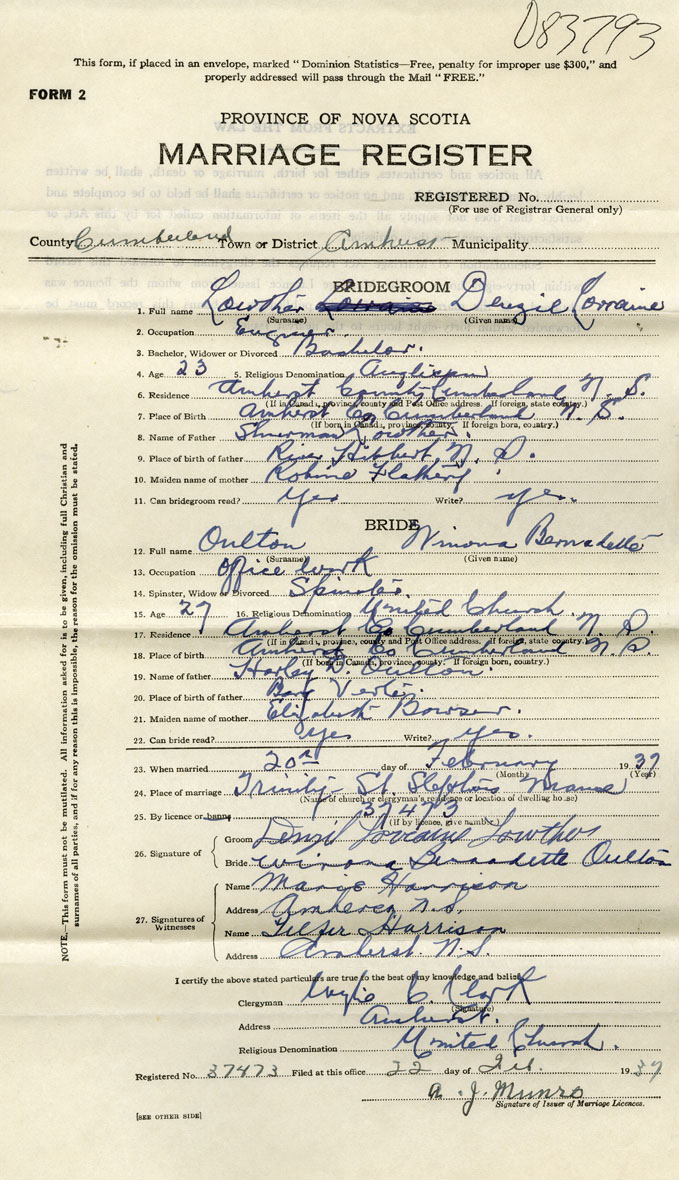 D83793
This form, if placed in an envelope, marked "Dominion Statistics—Free, penalty for improper use $300," and
properly addressed will pass through the Mail "FREE."
FORM 2
PROVINCE OF NOVA SCOTIA
MARRIAGE REGISTER
REGISTERED No.
(For use of Registrar General only)
County Cumberland Town or District Amherst Municipality
BRIDEGROOM
1. Full name Lowther Lorraine Denzil Lorraine
(Surname) (Given name)
2. Occupation Engineer
3. Bachelor, Widower or Divorced Bachelor.
4. Age 23 5. Religious Denomination Anglican
6. Residence Amherst County Cumberland N. S.
(If in Canada, province, county and Post Office address. If foreign, state country.)
7. Place of Birth Amherst Co Cumberland N. S.
(If born in Canada, province, county. If foreign born, country.)
8. Name of Father Sherman Lowther.
9. Place of birth of father River Hibbert N. S.
10. Maiden name of mother Robina
11. Can bridegroom read? Yes Write? yes.
BRIDE
12. Full name Oulton Winona Bernadette
(Surname) (Given name)
13. Occupation Office Work
14. Spinster, Widow or Divorced Spinster.
15. Age 27 16. Religious Denomination United Church.
17. Residence Amherst Co Cumberland N. S.
(If in Canada, province, county and Post Office address. If foreign, state country.)
18. Place of birth Amherst Co Cumberland N. S.
(If born in Canada, province, county. If foreign born, country.)
19. Name of father Oulton.
20. Place of birth of father
21. Maiden name of mother Elizabeth Bowser.
22. Can bride read? yes Write? yes.
23. When married 20th day of February 1937
(Month) (Year)
24. Place of marriage Trinity-St. Stephens Manse
(Name of church or clergyman's residence or location of dwelling house)
25. By licence or banns 37473
(If by licence, give number)
26. Signature of
Groom Denzil Lorraine Lowther
Bride Winona Bernadette Oulton
27. Signatures of Witnesses
Name Harrison
Address Amherst N.S.
Name Harrison
Address Amherst. N.S.
I certify the above stated particulars are true to the best of my knowledge and belief.
Clergyman C. Clark
(Signature)
Address Amherst.
Religious Denomination United Church.
Registered No. 37473 Filed at this office 22 day of Feb. 1937
A. J. Munro
Signature of Issuer of Marriage Licences.
[SEE OTHER SIDE]
NOTE.—This form must not be mutilated. All information asked for is to be given, including full Christian and
surnames of all parties, and if for any reason this is impossible, the reason for the omission must be stated.